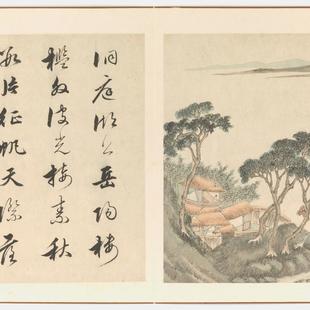 洞庭湖上岳陽樓
檻外波光接素秋
數片征帆天際落